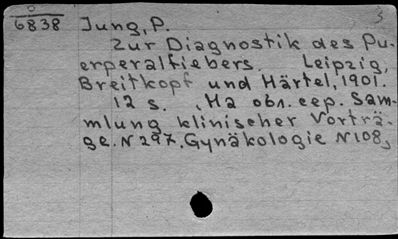 0
6838 Jung, P. 3
Zur Diagnostik des Pu-
erperalfiebers. Leipzig,
Breitkopf und Härtel, 1901.
12 s. На обл. сер. Sam-
mlung klinischer Vorträ-
ge. N 297. Gynäkologie N 108,